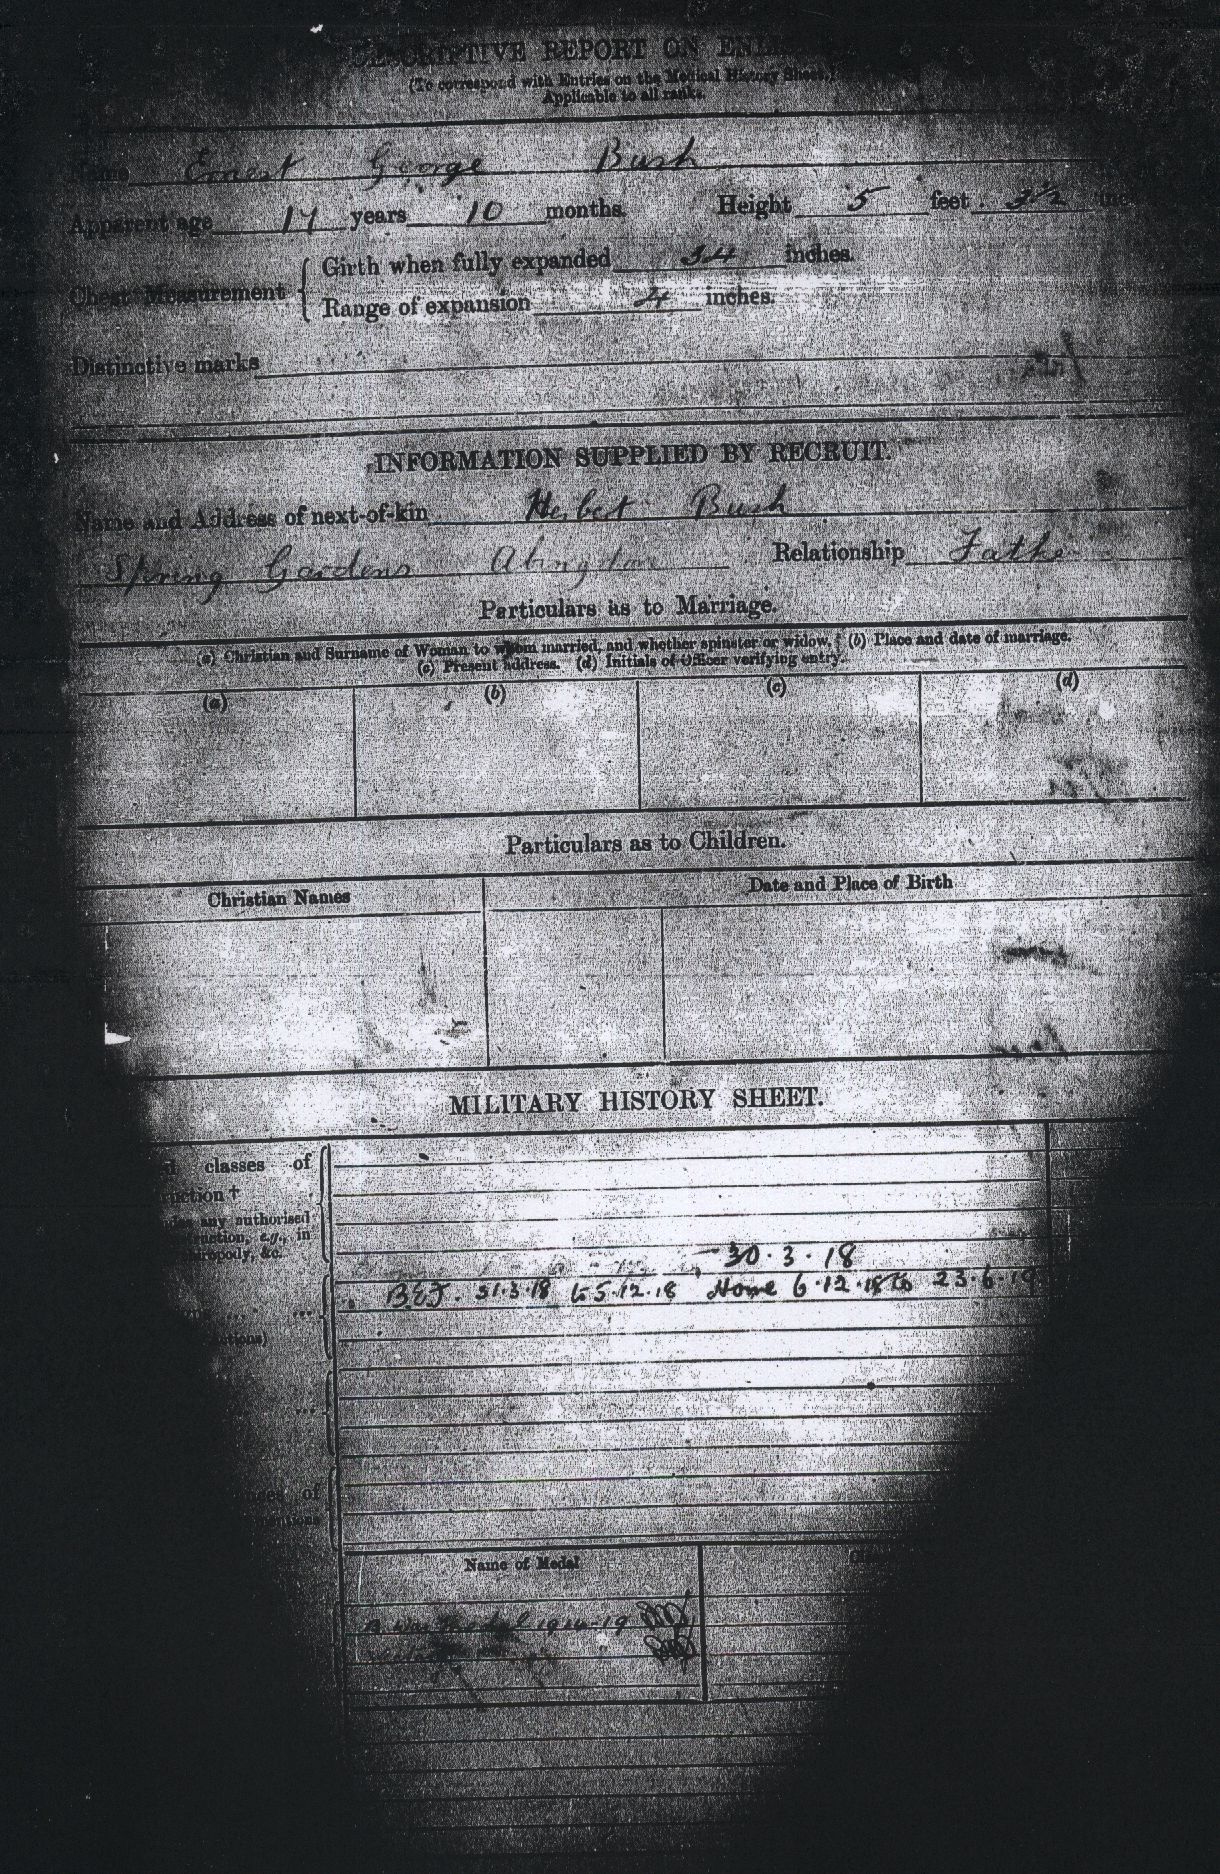 DESCRIPTIVE REPORT ON
(To correspond with Entries on the Medical History Sheet.)
Applicable to all ranks.
Name Ernest George Bush
Apparent age 17 years 10 months. Height 5 feet 3½
Chest Measurement { Girth when fully expanded 34 inches.
Range of expansion 4 inches.
Distinctive marks
INFORMATION SUPPLIED BY RECRUIT.
Name and Address of next-of-kin Herbert Bush
Spring Gardens Abingdon Relationship Father
Particulars as to Marriage.
(a) Christian and Surname of Woman to whom married, and whether spinster or widow. (b) Place and date of marriage.
(c) Present address. (d) Initials of Officer verifying entry.
(a) (b) (c) (d)
Particulars as to Children.
Christian Names Date and Place of Birth
MILITARY HISTORY SHEET.
classes of
†
any authorised
e.g., in
&c.
30.3.18
B.E.F. 31.3.18 to 5.12.18 Home 6.12.18 to 23.6.19
of
Name of Medal
B War Medal 1914-19